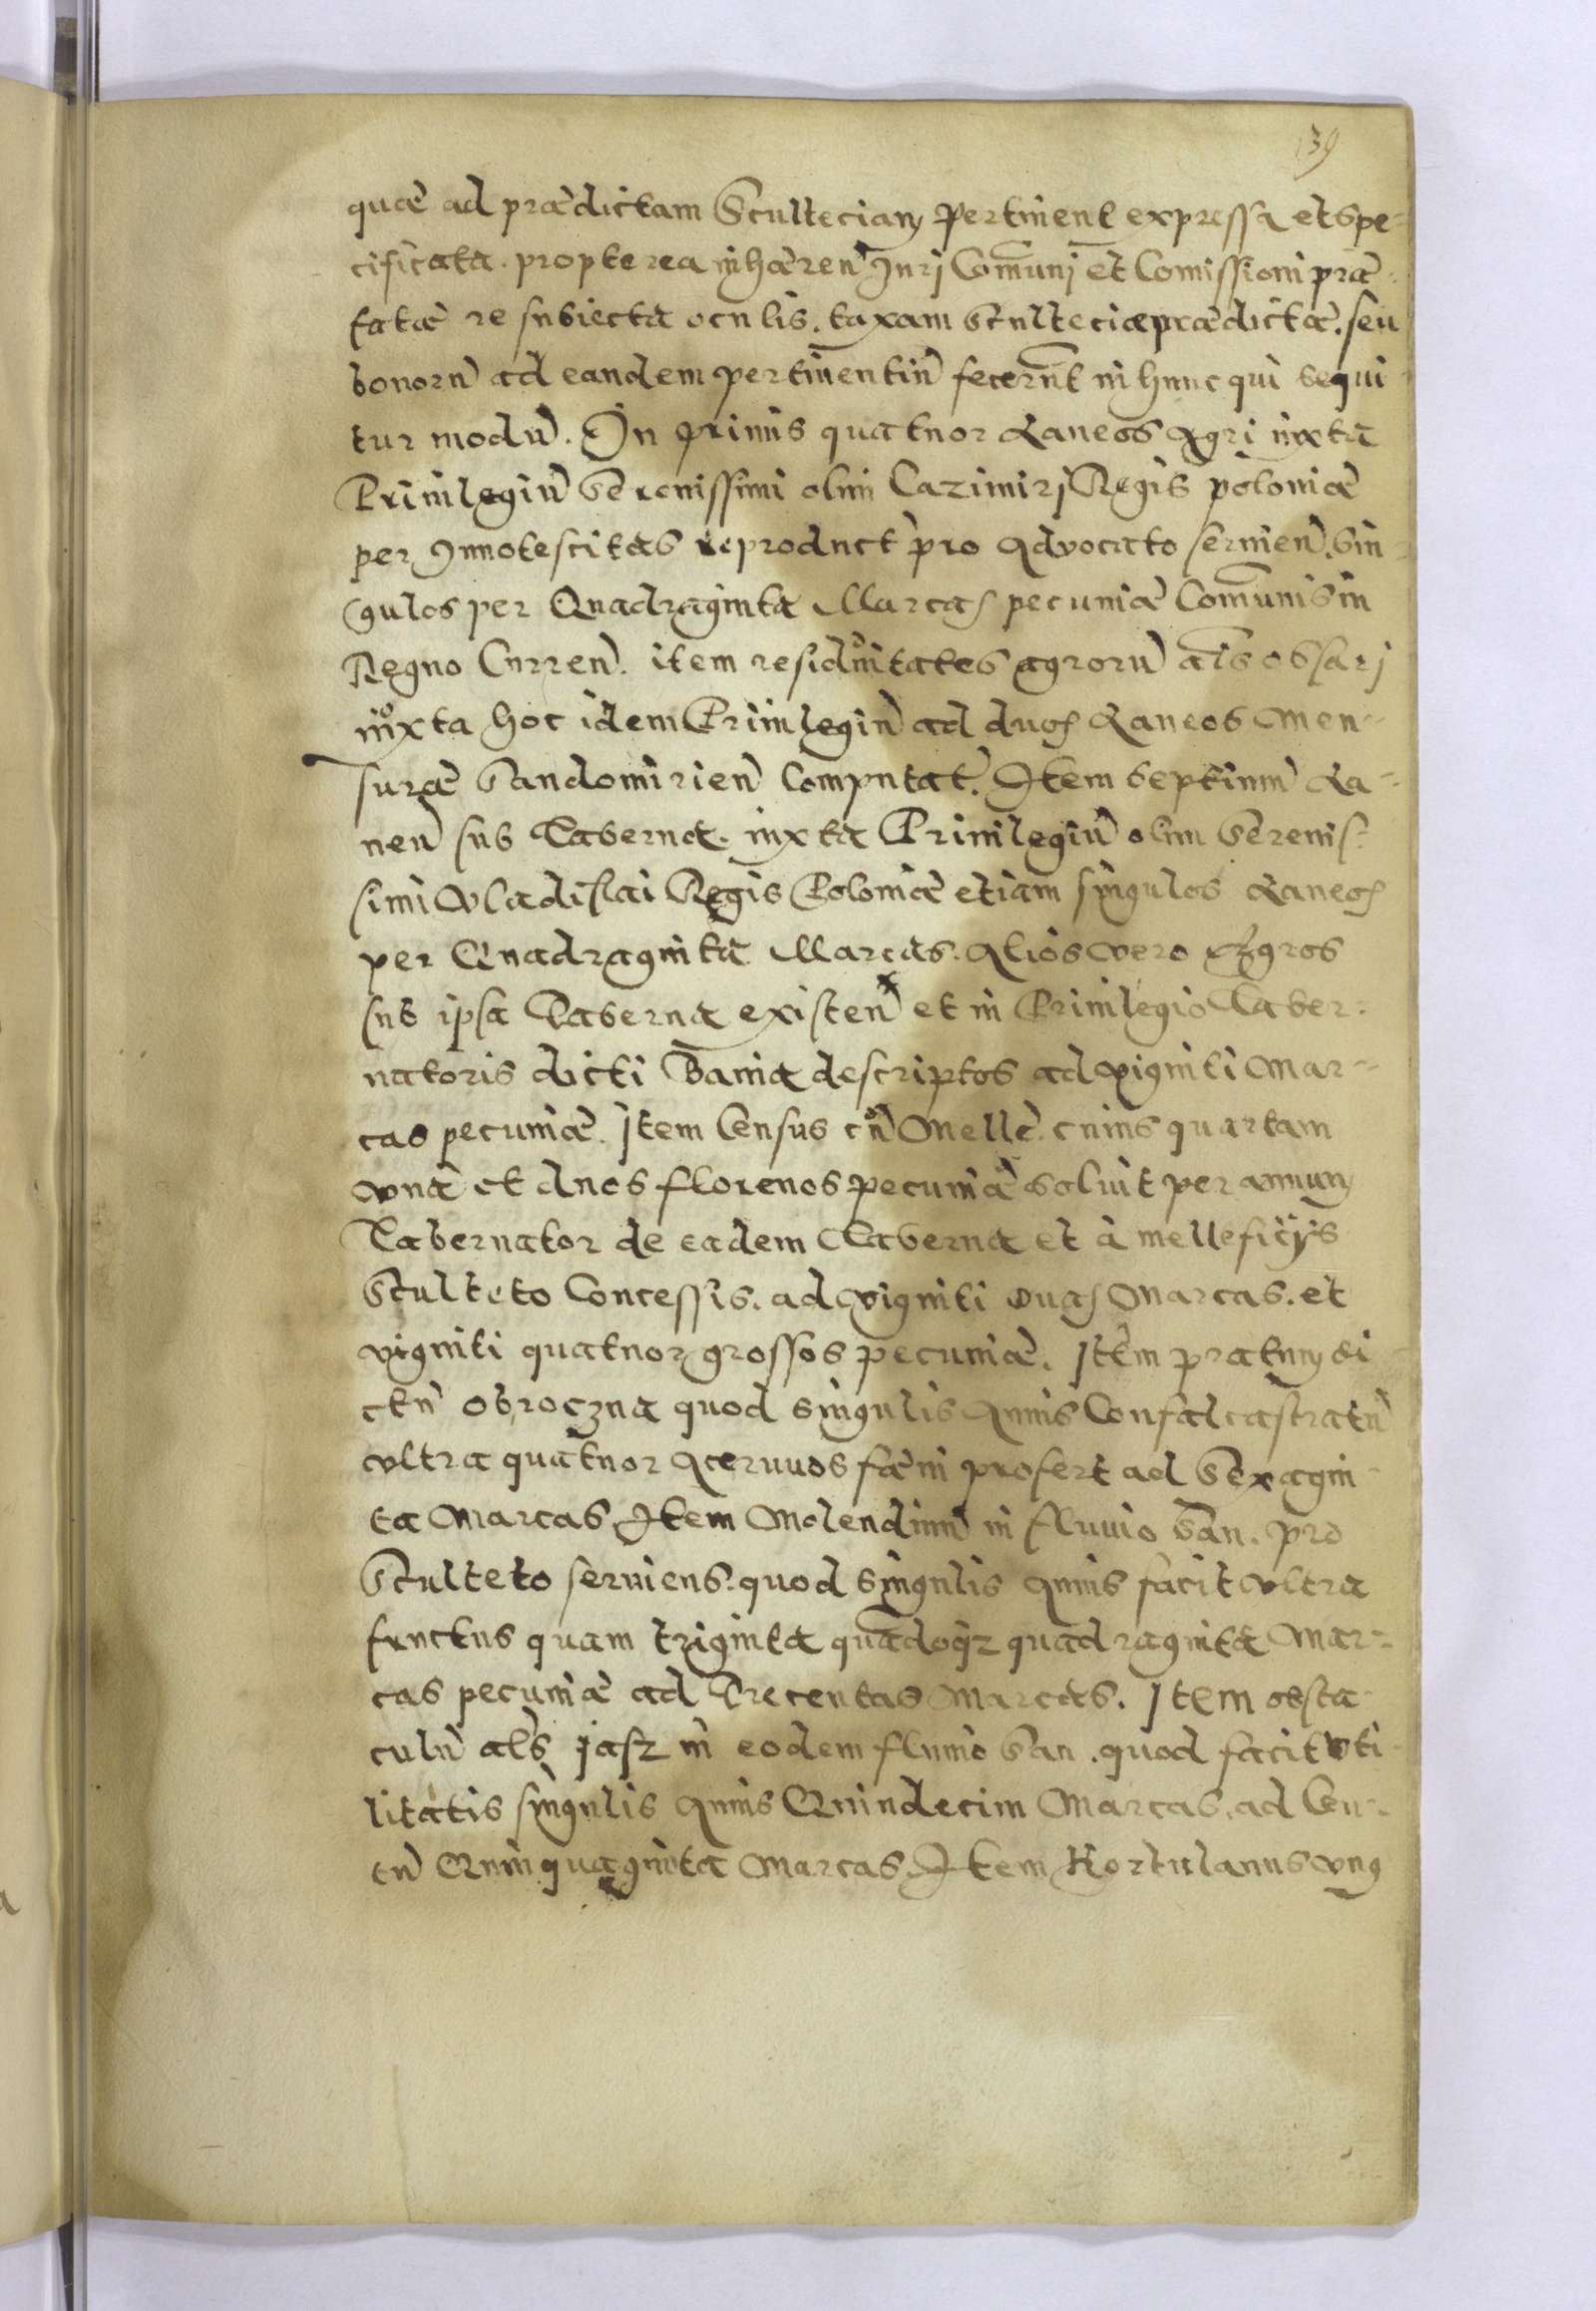 39
quæ ad prædictam Sculteciam pertinent expressa et spe-
cificata. propterea inhæren Juri Comuni et Comissioni præ-
fatæ re subiecta oculis. taxam Sculteciæ prædictæ. seu
bonorũ ad eandem pertinentiũ fecerunt in hunc qui sequi
tur modũ. In primis quatuor Laneos Agri iuxta
Priuilegiũ Serenissimi olim Cazimirj Regis poloniæ
per Innotescitas reproduct pro Advocato seruien. Sin-
gulos per Quadraginta Marcas pecuniæ Comunis in
Regno Curren. item residuitates agrorũ ał's obsarj
iuxta hoc idem Priuilegiũ ad duos Laneos Men-
suræ Sandomirien Computat. Item Septimũ La-
neũ sub Taberna. iuxta Priuilegiũ olim Serenis-
simi Vladislai Regis Poloniæ etiam singulos Laneos
per Quadraginta Marcas. Alios vero Agros
sub ipsa Taberna existen et in Priuilegio Taber-
natoris dicti Bania descriptos ad viginti Mar-
cas pecuniæ. Item Census cũ Melle. cuius quartam
vnã et duos florenos pecuniæ soluit per annum
Tabernator de eadem Taberna et à mellificijs
Sculteto Concessis. ad viginti duas Marcas. et
viginti quatuor grossos pecuniæ. Item pratum di
ctũ Obroczna quod singulis Annis Confalcastratũ
vltra quatuor Aceruuos fæni profert ad Sexagin-
ta Marcas Item Molendinũ in fluuio San. pro
Sculteto seruiens. quod singulis Annis facit vltra
fructus quam triginta quãdoqz quadraginta Mar-
cas pecuniæ ad Trecentas Marcas. Item obsta-
culũ al's jasz in eodem fluuio San. quod facit vti-
litatis singulis Annis Quindecim Marcas. ad Cen-
tũ Quinquaginta Marcas. Item Hortulanus vnus